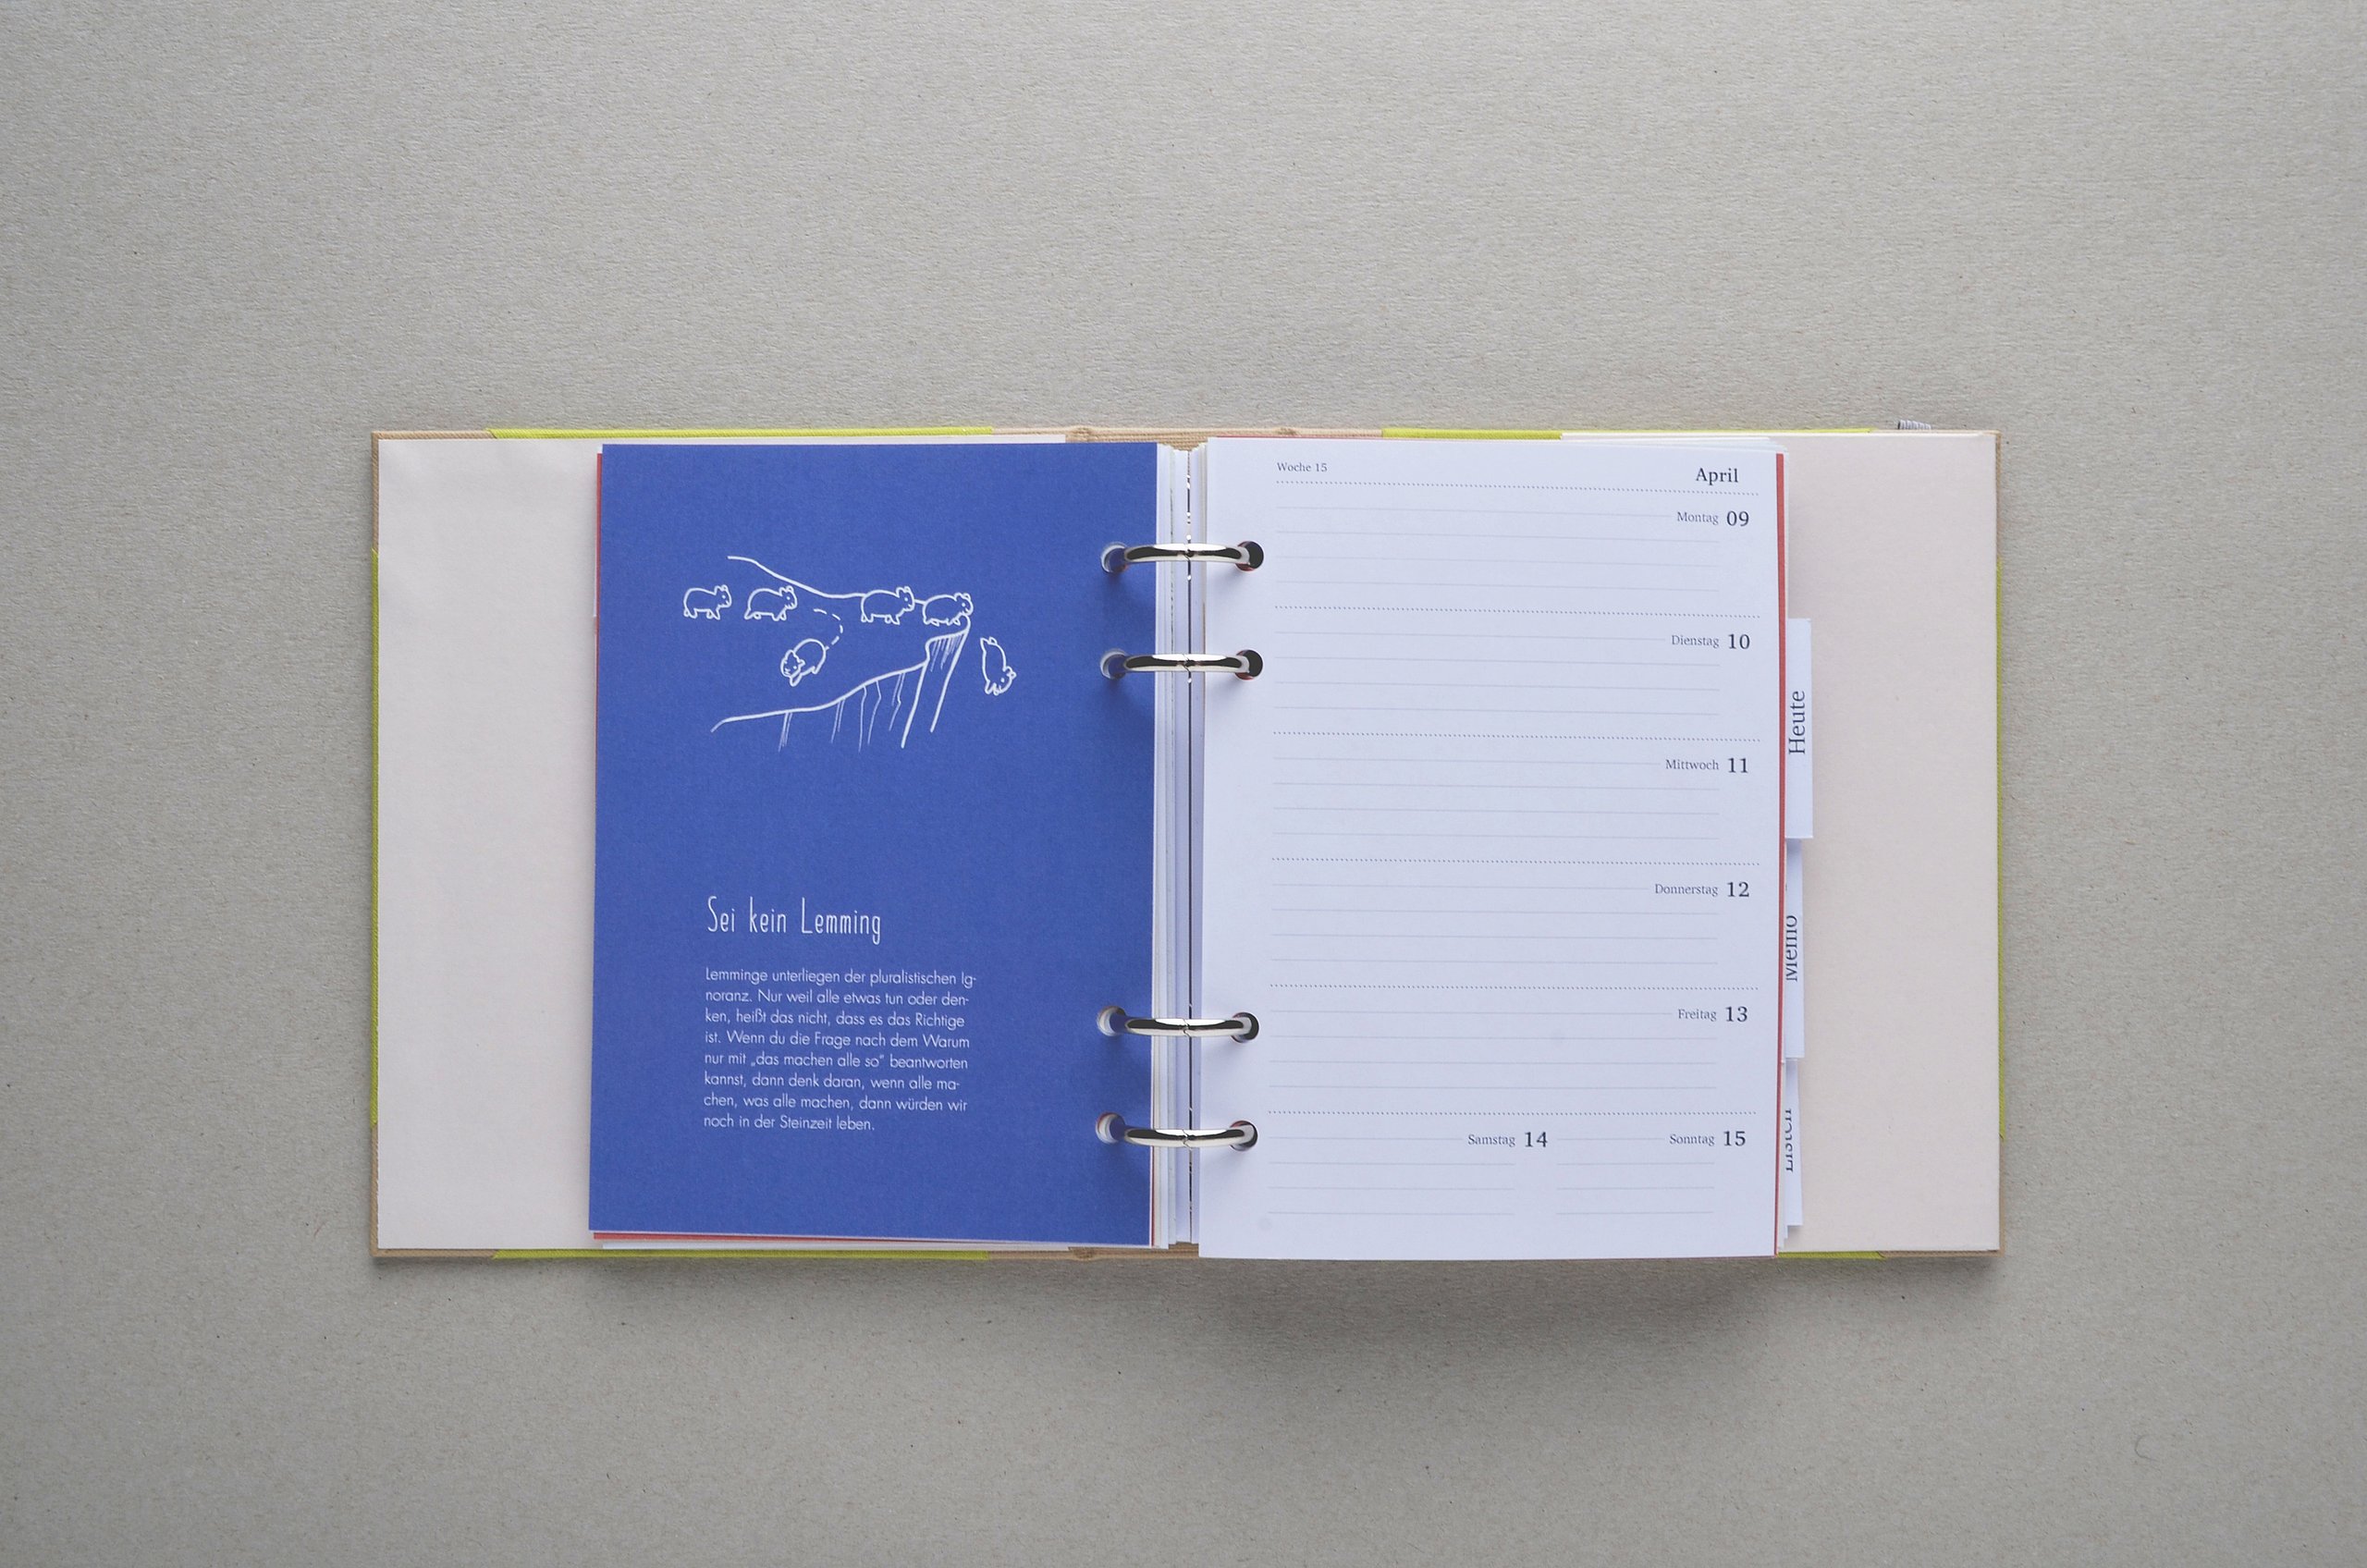 Sei kein Lemming
Lemminge unterliegen der pluralistischen Ig-
noranz. Nur weil alle etwas tun oder den-
ken, heißt das nicht, dass es das Richtige
ist. Wenn du die Frage nach dem Warum
nur mit „das machen alle so“ beantworten
kannst, dann denk daran, wenn alle ma-
chen, was alle machen, dann würden wir
noch in der Steinzeit leben.
Woche 15
April
Montag 09
Dienstag 10
Mittwoch 11
Donnerstag 12
Freitag 13
Samstag 14
Sonntag 15
Heute
Memo
Listen